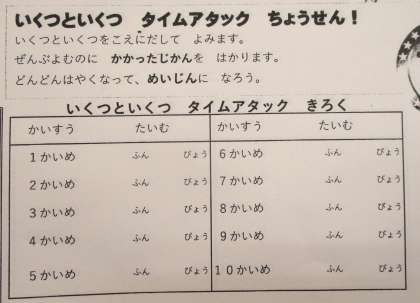 いくつといくつ　タイムアタック　ちょうせん！
いくつといくつをこえにだして　よみます。
ぜんぶよむのに　かかったじかんを　はかります。
どんどんはやくなって、めいじんに　なろう。
いくつといくつ　タイムアタック　きろく
かいすう　たいむ　かいすう　たいむ
１かいめ　ふん　びょう　６かいめ　ふん　びょう
２かいめ　ふん　びょう　７かいめ　ふん　びょう
３かいめ　ふん　びょう　８かいめ　ふん　びょう
４かいめ　ふん　びょう　９かいめ　ふん　びょう
５かいめ　ふん　びょう　１０かいめ　ふん　びょう